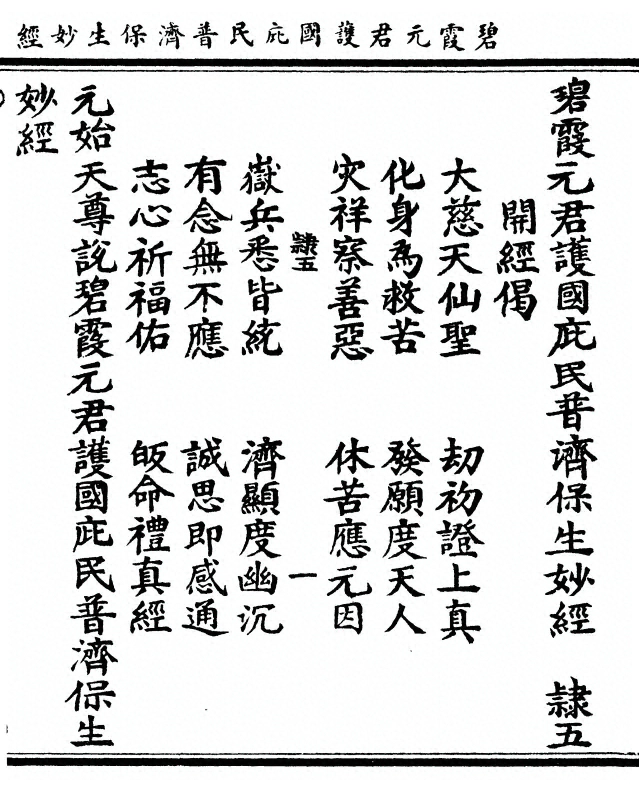 碧霞元君護國庇民普濟保生妙經
碧霞元君護國庇民普濟保生妙經 隸五
開經偈
大慈天仙聖 劫初證上真
化身為救苦 發願度天人
灾祥察善惡 休苦應元因
隸五 一
嶽兵悉皆統 濟顯度幽沉
有念無不應 誠思即感通
志心祈福佑 皈命禮真經
元始天尊說碧霞元君護國庇民普濟保生
妙經